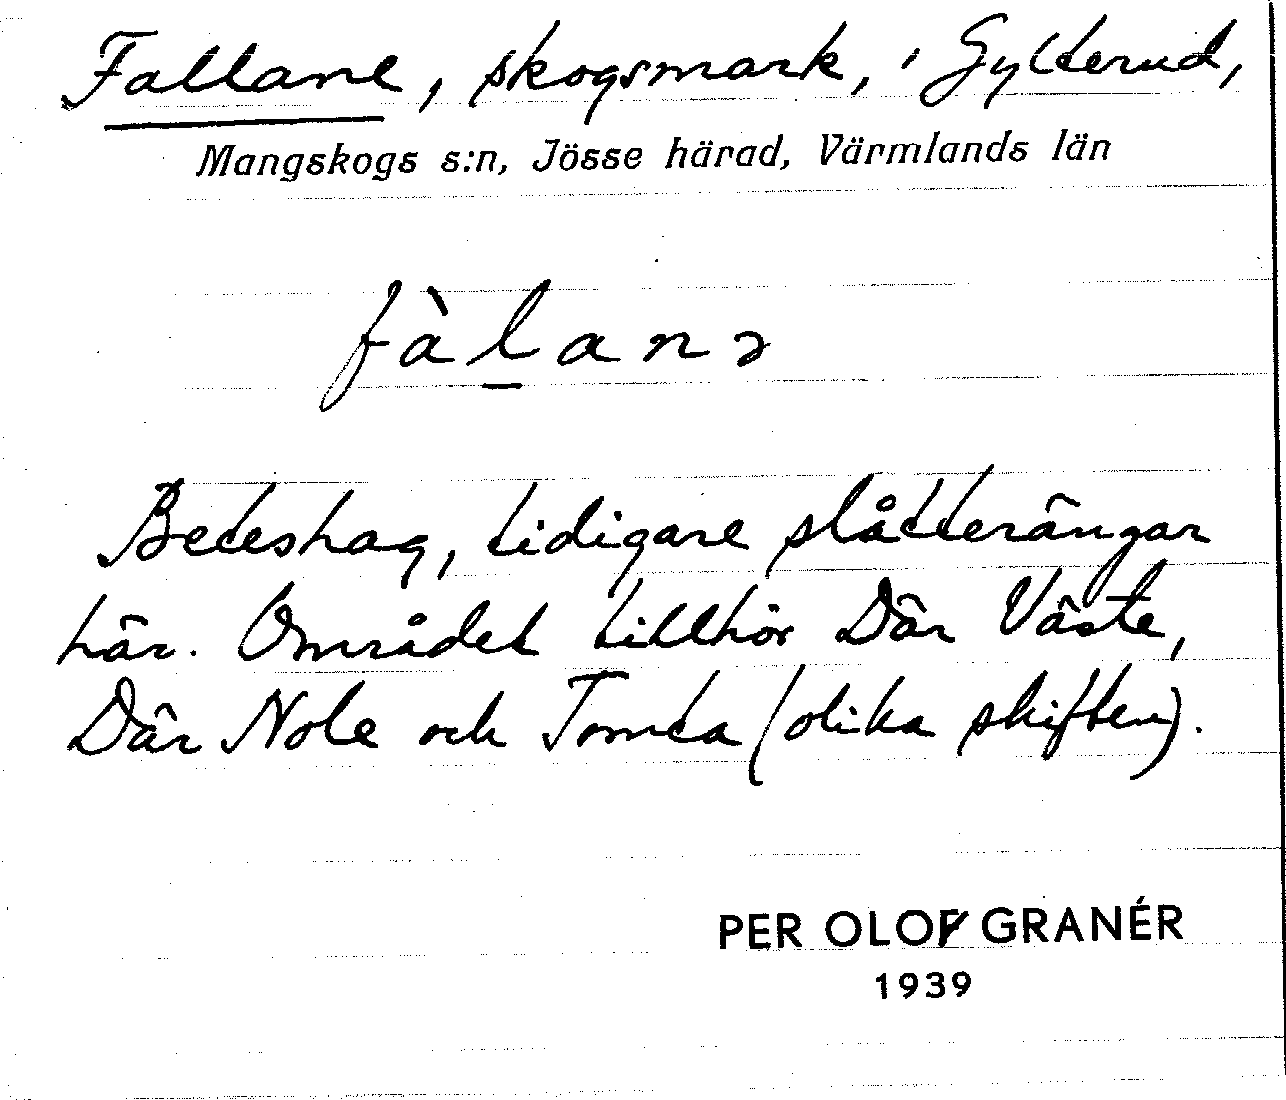 Fallane, skogsmark, i Gylterud,
Mangskogs s:n, Jösse härad, Värmlands län
fàl̠anə
Beteshag, tidigare slåtterängar
här. Området tillhör Där Väste,
Där Nole och Tomta (olika skiften).
PER OLOF GRANÉR
1939